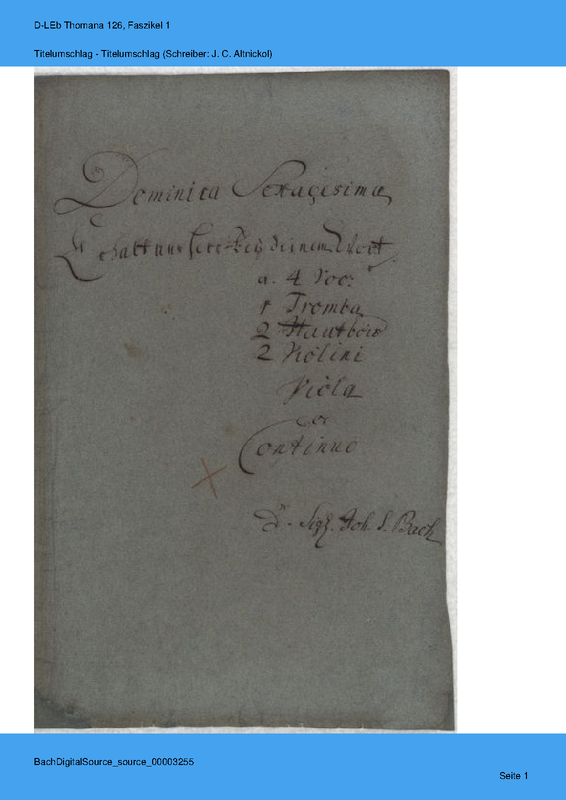 D-LEb Thomana 126, Faszikel 1
Titelumschlag - Titelumschlag (Schreiber: J. C. Altnickol)
Dominica Sexagesimæ
Erhalt uns Herr bey deinem Wort
a. 4 Voc:
1 Tromba
2 Hautbois
2 Violini
Viola
Continuo
J. S. Bach
BachDigitalSource_source_00003255
Seite 1